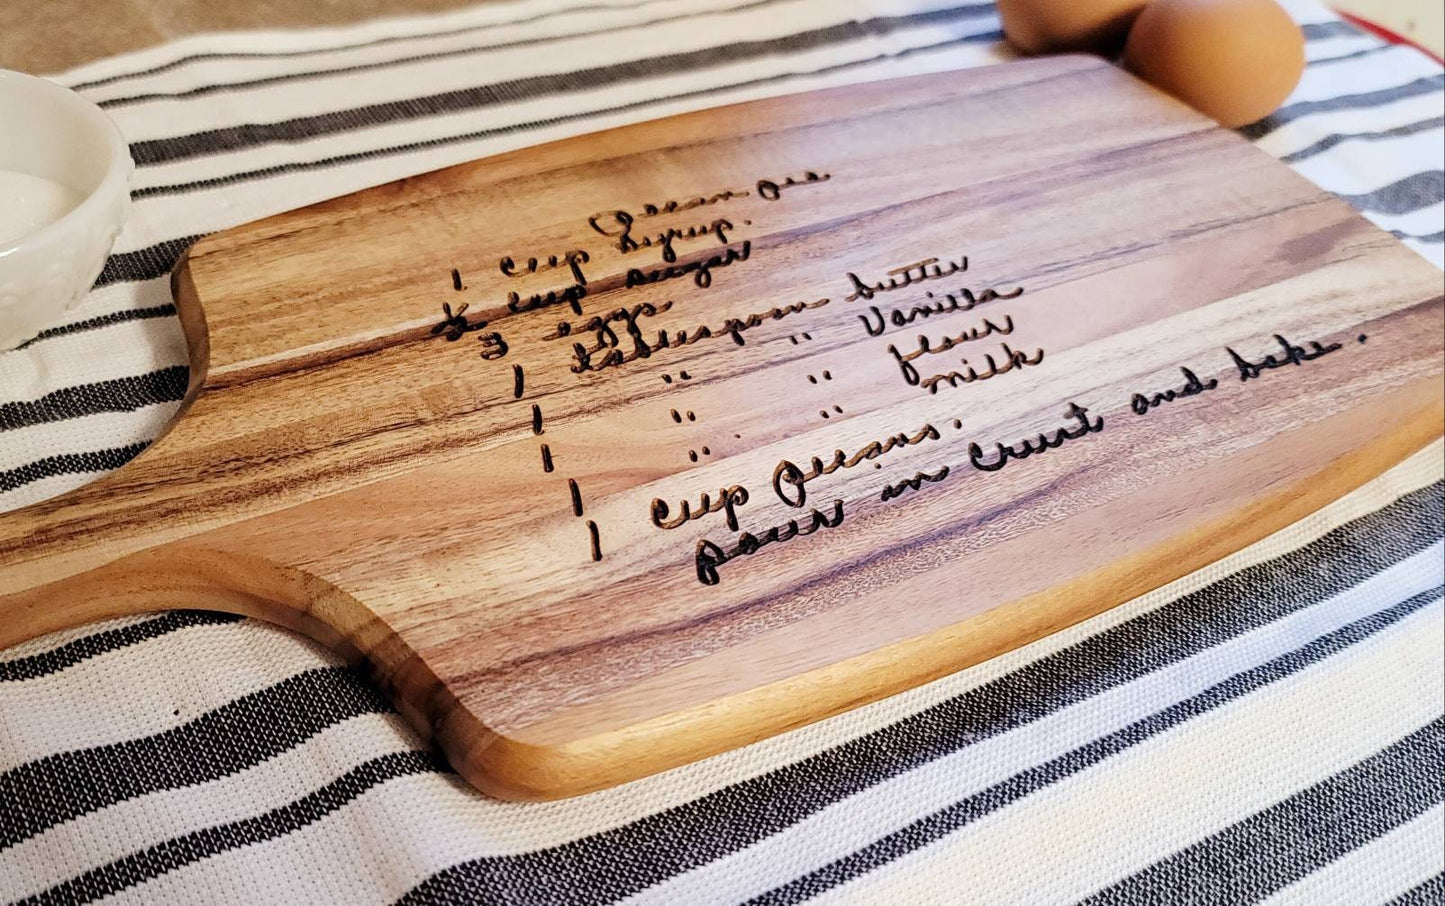 Pecan pie
1 cup syrup.
½ cup sugar
3 eggs
1 tablespoon butter
1 " " Vanilla
1 " " flour
1 " " milk
1 cup pecans.
pour in crust and bake.